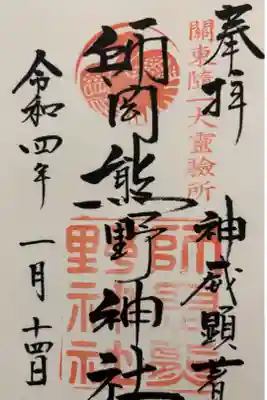 奉拝
關東随一大靈驗所
神威顕著
師岡熊野神社
令和四年
一月十四日
師岡熊
野神社